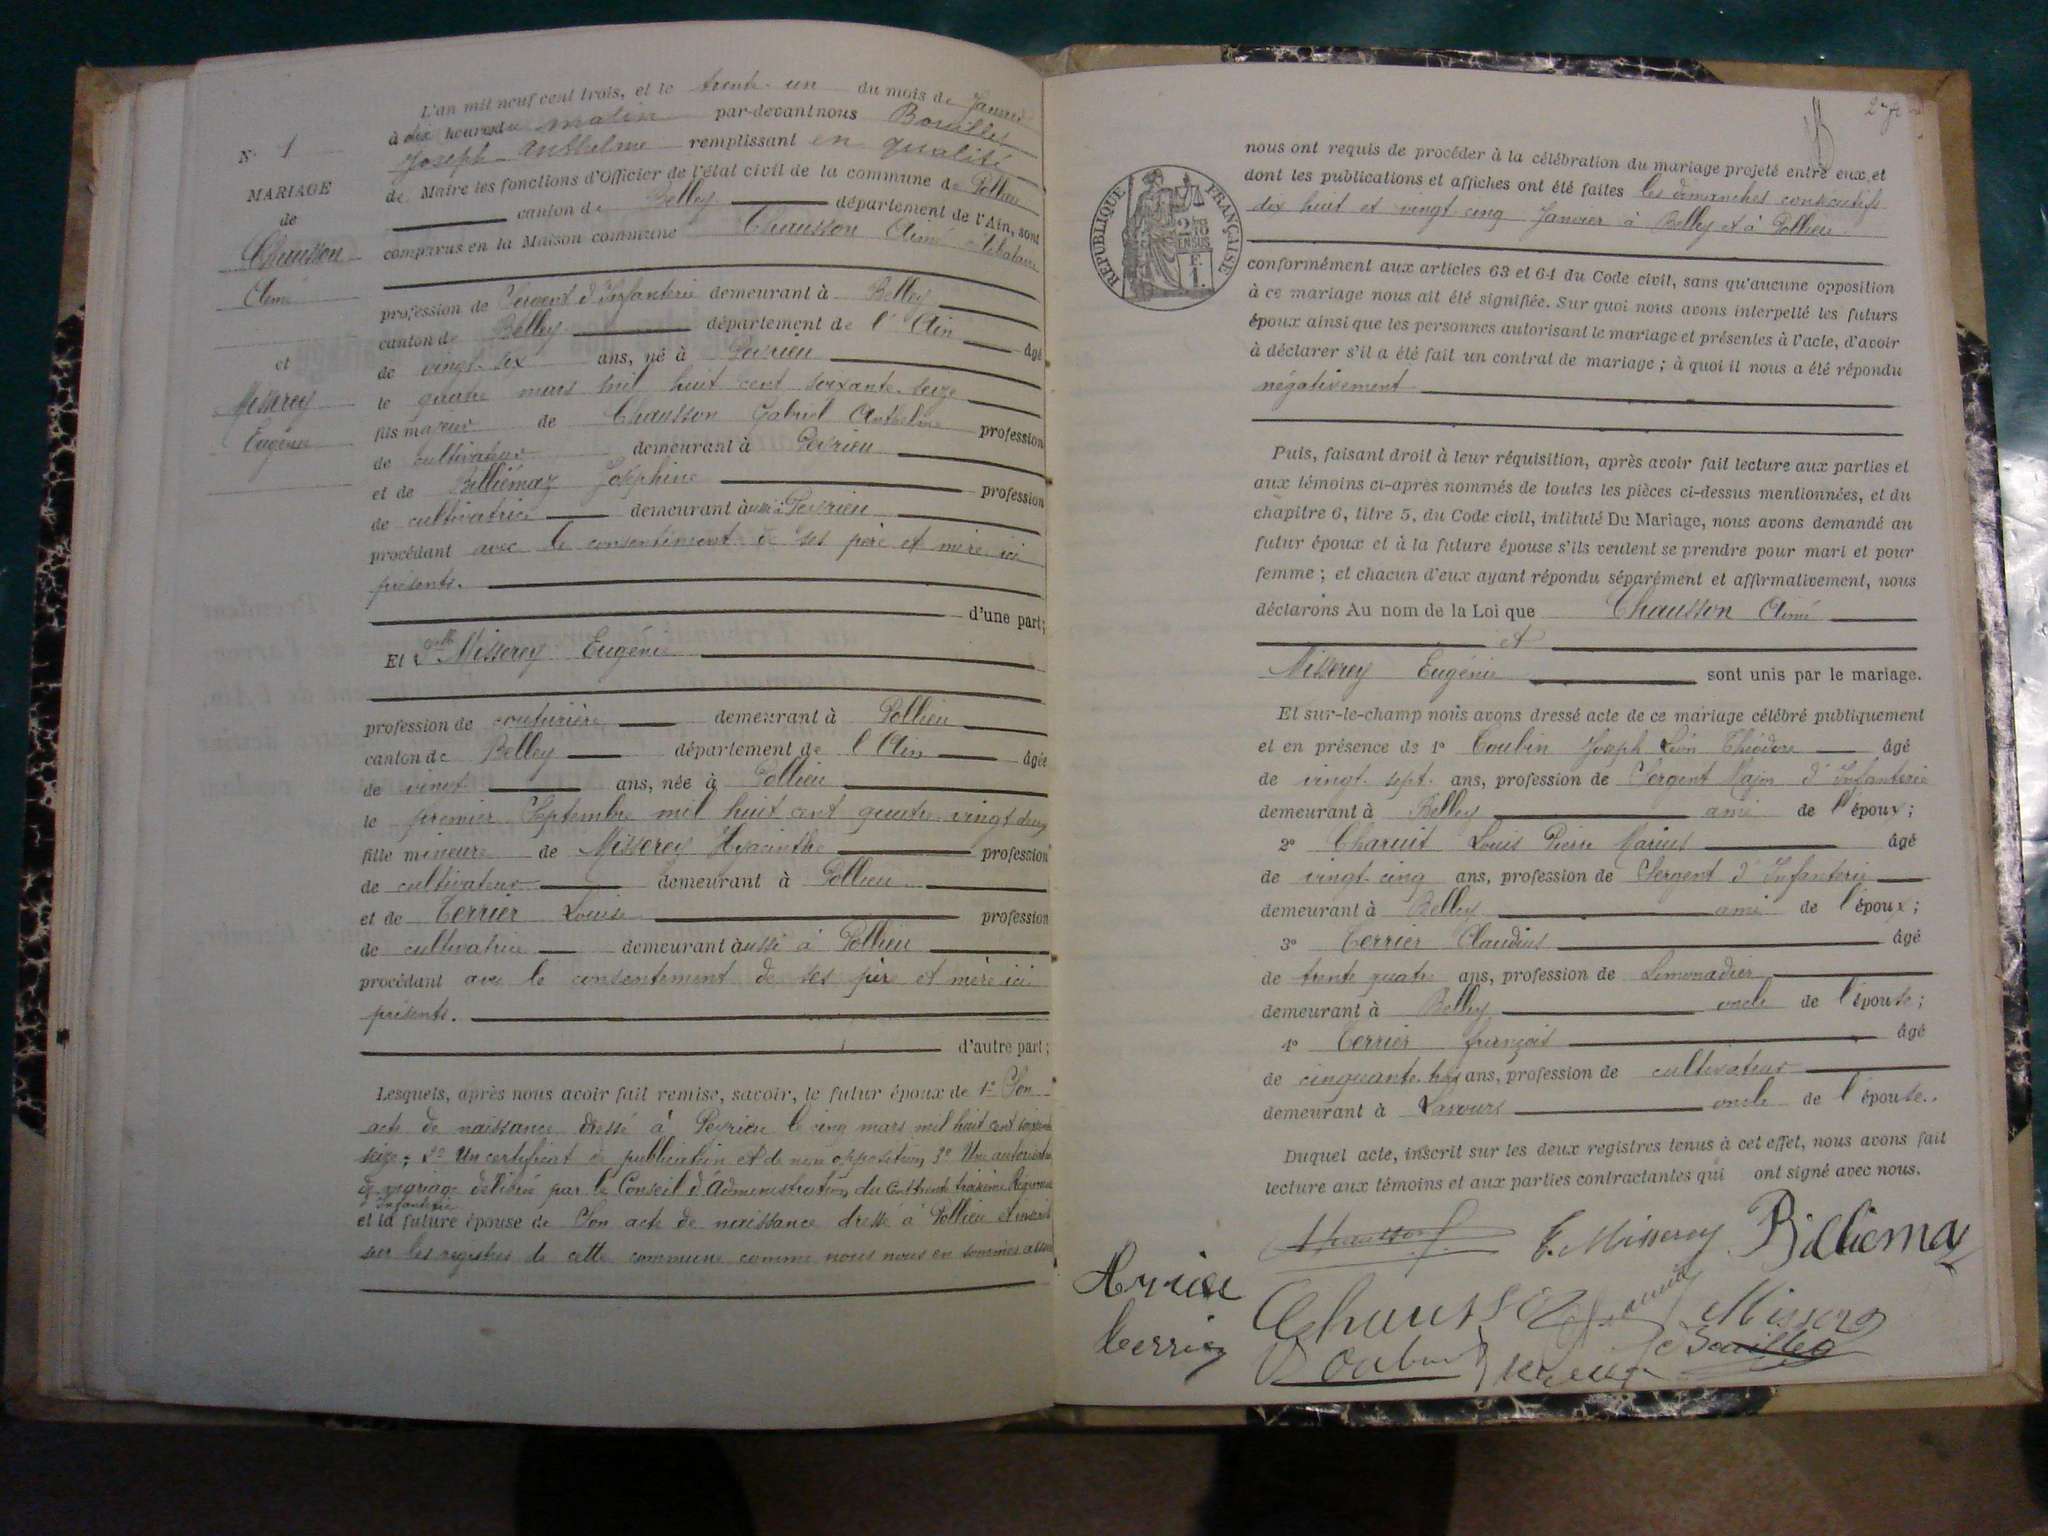 N° 1
MARIAGE
de
Chausson
Aimé
et
Misserey
Eugénie
L'an mil neuf cent trois, et le trente-un du mois de Janvier
à dix heures du matin par-devant nous Bouillet
Joseph Anthelme remplissant en qualité
de Maire les fonctions d'Officier de l'état civil de la commune de Pollieu
canton de Belley département de l'Ain, sont
comparus en la Maison commune Chausson Aimé
profession de Sergent d'Infanterie demeurant à Belley
canton de Belley département de l'Ain âgé
de vingt-six ans, né à Peyrieu
le quatre mars mil huit cent soixante-seize
fils majeur de Chausson Gabriel Anthelme profession
de cultivateur demeurant à Peyrieu
et de Billiémaz Joséphine profession
de cultivatrice demeurant aussi à Peyrieu
procédant avec le consentement de ses père et mère ici
présents.
d'une part;
Et Delle Misserey Eugénie
profession de couturière demeurant à Pollieu
canton de Belley département de l'Ain âgée
de vingt ans, née à Pollieu
le premier Septembre mil huit cent quatre-vingt deux
fille mineure de Misserey Hyacinthe profession
de cultivateur demeurant à Pollieu
et de Terrier Louise profession
de cultivatrice demeurant aussi à Pollieu
procédant avec le consentement de ses père et mère ici
présents.
d'autre part;
Lesquels, après nous avoir fait remise, savoir, le futur époux de 1° Son
acte de naissance dressé à Peyrieu le cinq mars mil huit cent soixante
seize; 2° Un certificat de publication et de non opposition 3° Une autorisation
de mariage délivré par le Conseil d'Administration du Cent trente troisième Régiment
d'Infanterie
et la future épouse de Son acte de naissance dressé à Pollieu et inscrit
sur les registres de cette commune comme nous nous en sommes assuré
RÉPUBLIQUE FRANÇAISE
nous ont requis de procéder à la célébration du mariage projeté entre eux, et
dont les publications et affiches ont été faites les dimanches consécutifs
dix huit et vingt cinq Janvier à Belley et à Pollieu
conformément aux articles 63 et 64 du Code civil, sans qu'aucune opposition
à ce mariage nous ait été signifiée. Sur quoi nous avons interpellé les futurs
époux ainsi que les personnes autorisant le mariage et présentes à l'acte, d'avoir
à déclarer s'il a été fait un contrat de mariage; à quoi il nous a été répondu
négativement
Puis, faisant droit à leur réquisition, après avoir fait lecture aux parties et
aux témoins ci-après nommés de toutes les pièces ci-dessus mentionnées, et du
chapitre 6, titre 5, du Code civil, intitulé Du Mariage, nous avons demandé au
futur époux et à la future épouse s'ils veulent se prendre pour mari et pour
femme; et chacun d'eux ayant répondu séparément et affirmativement, nous
déclarons Au nom de la Loi que Chausson Aimé
et
Misserey Eugénie sont unis par le mariage.
Et sur-le-champ nous avons dressé acte de ce mariage célébré publiquement
et en présence de 1° Coubin Joseph Léon Théodore âgé
de vingt-sept ans, profession de Sergent Major d'Infanterie
demeurant à Belley ami de l'époux;
2° Charuit Louis Pierre Marius âgé
de vingt-cinq ans, profession de Sergent d'Infanterie
demeurant à Belley ami de l'époux;
3° Terrier Claudius âgé
de trente quatre ans, profession de Limonadier
demeurant à Belley oncle de l'épouse;
4° Terrier françois âgé
de cinquante trois ans, profession de cultivateur
demeurant à Lavours oncle de l'épouse.
Duquel acte, inscrit sur les deux registres tenus à cet effet, nous avons fait
lecture aux témoins et aux parties contractantes qui ont signé avec nous.
Chausson E. Misserey Billiemaz
Chausson Misserey
Terrier Bouillet